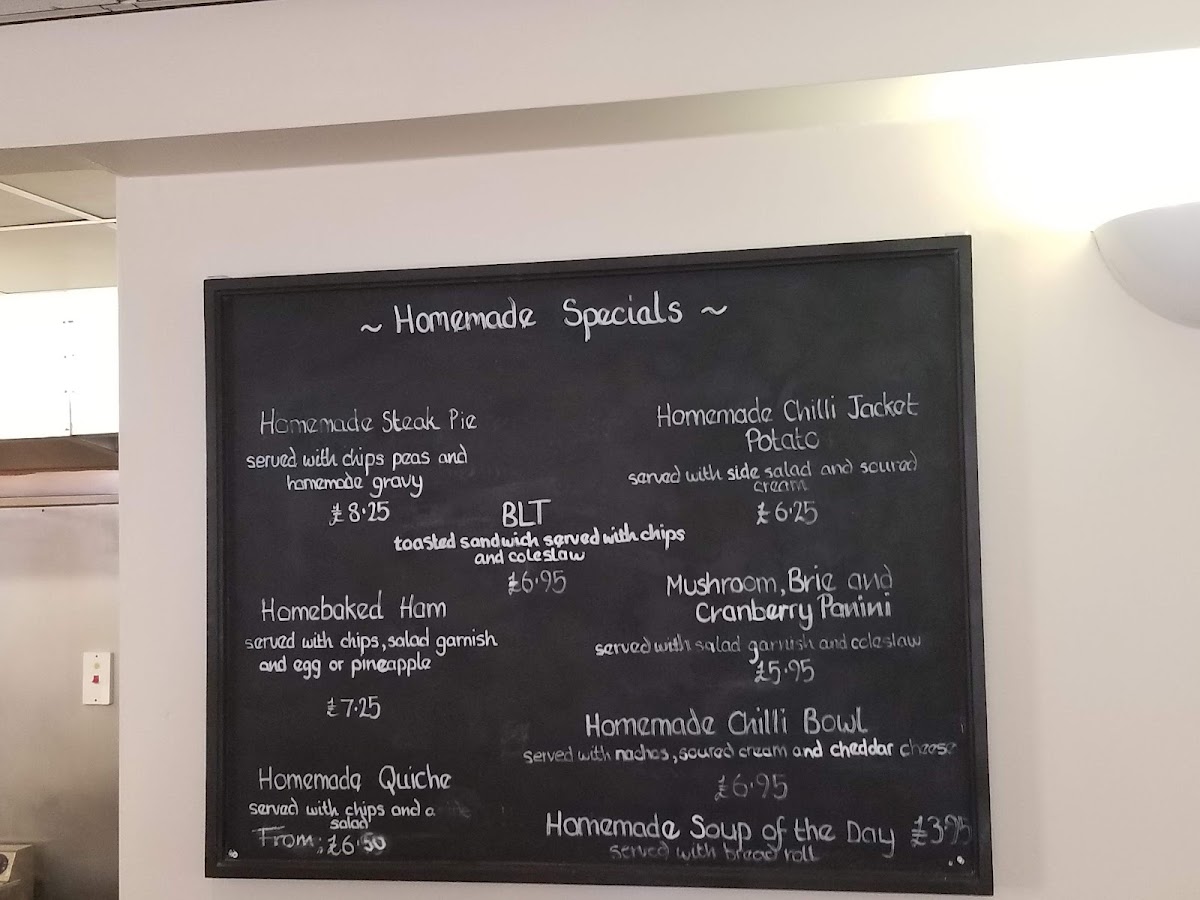 ~ Homemade Specials ~
Homemade Steak Pie
served with chips peas and
homemade gravy
£8.25
BLT
toasted sandwich served with chips
and coleslaw
£6.95
Homebaked Ham
served with chips, salad garnish
and egg or pineapple
£7.25
Homemade Quiche
served with chips and a
salad
From: £6.50
Homemade Chilli Jacket
Potato
served with side salad and soured
cream
£6.25
Mushroom, Brie and
Cranberry Panini
served with salad garnish and coleslaw
£5.95
Homemade Chilli Bowl
served with nachos, soured cream and cheddar cheese
£6.95
Homemade Soup of the Day £3.95
served with bread roll